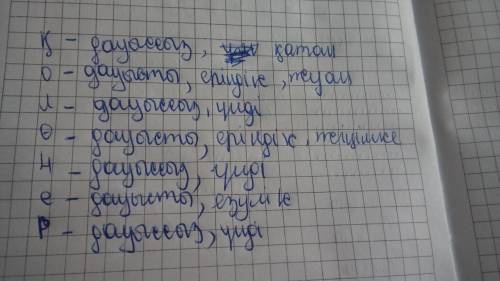 Қ - дауыссыз, қатаң
О - дауысты, еріндік, жуан
Л - дауыссыз, үнді
Ө - дауысты, еріндік, жіңішке
Н - дауыссыз, үнді
е - дауысты, езулік
Р - дауыссыз, үнді